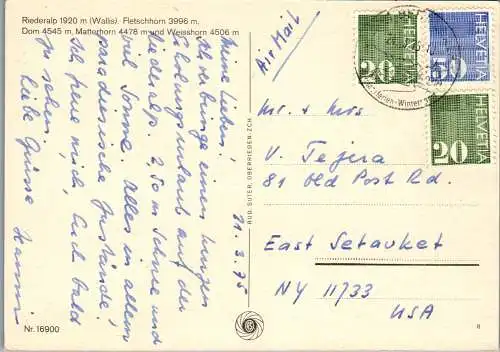 Riederalp 1920 m (Wallis). Fletschhorn 3996 m,
Dom 4545 m, Matterhorn 4478 m und Weisshorn 4506 m
Air Mail
HELVETIA
20
HELVETIA
50
HELVETIA
20
11.3.75
Meine Lieben!
Ich verbringe einen kurzen
Erholungsurlaub auf der
Riederalp. 2.50 m Schnee und
viel Sonne. Alles in allem
paradiesische Zustände!
Ich freue mich, Euch bald
zu sehen.
Liebe Grüsse
Mr. & Mrs.
V. Tejera
81 Old Post Rd.
East Setauket
NY 11733
USA
RUD. SUTER, OBERRIEDEN-ZCH.
Nr. 16900
8